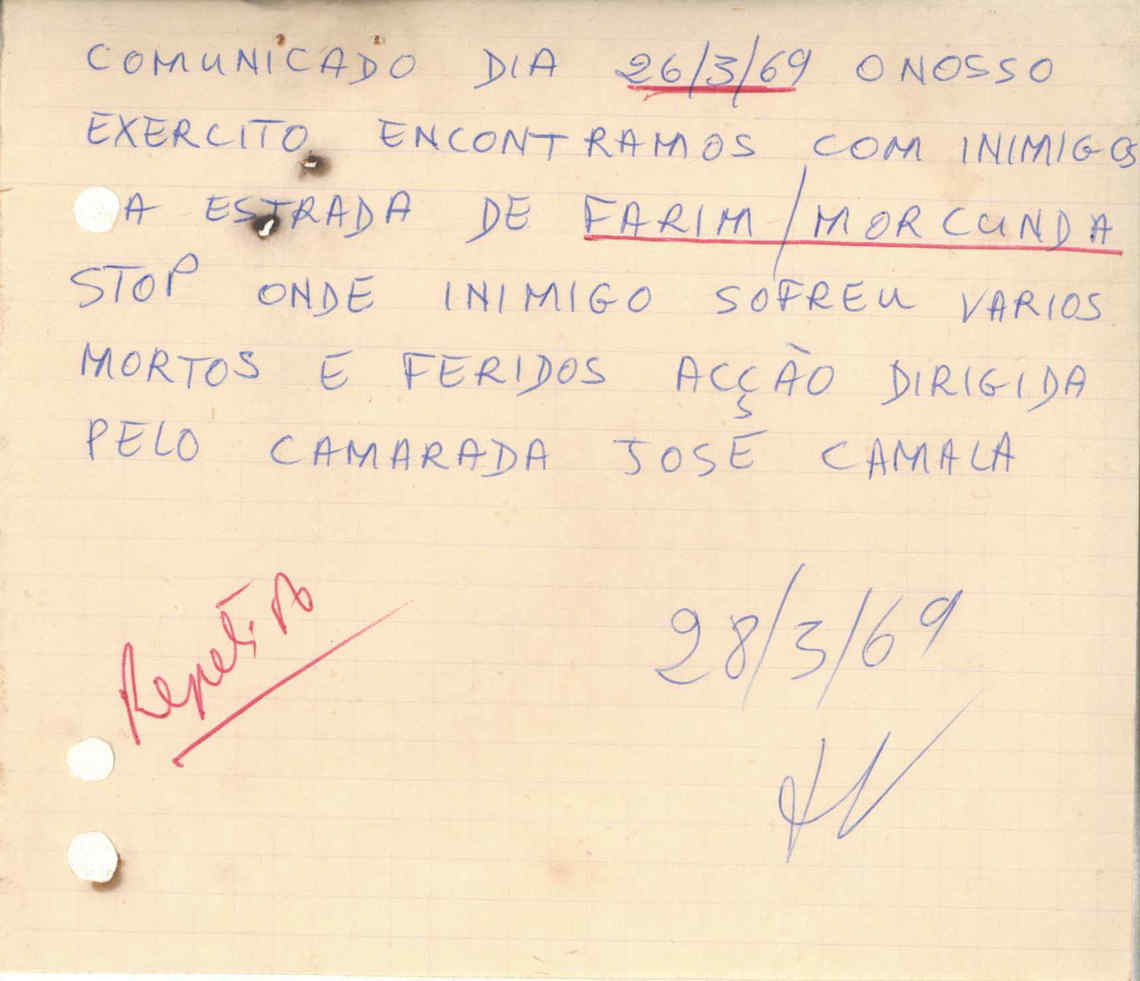 COMUNICADO DIA 26/3/69 O NOSSO
EXERCITO ENCONTRAMOS COM INIMIGOS
A ESTRADA DE FARIM/MORCUNDA
STOP ONDE INIMIGO SOFREU VARIOS
MORTOS E FERIDOS ACÇÃO DIRIGIDA
PELO CAMARADA JOSÉ CAMALA
Repetido
28/3/69